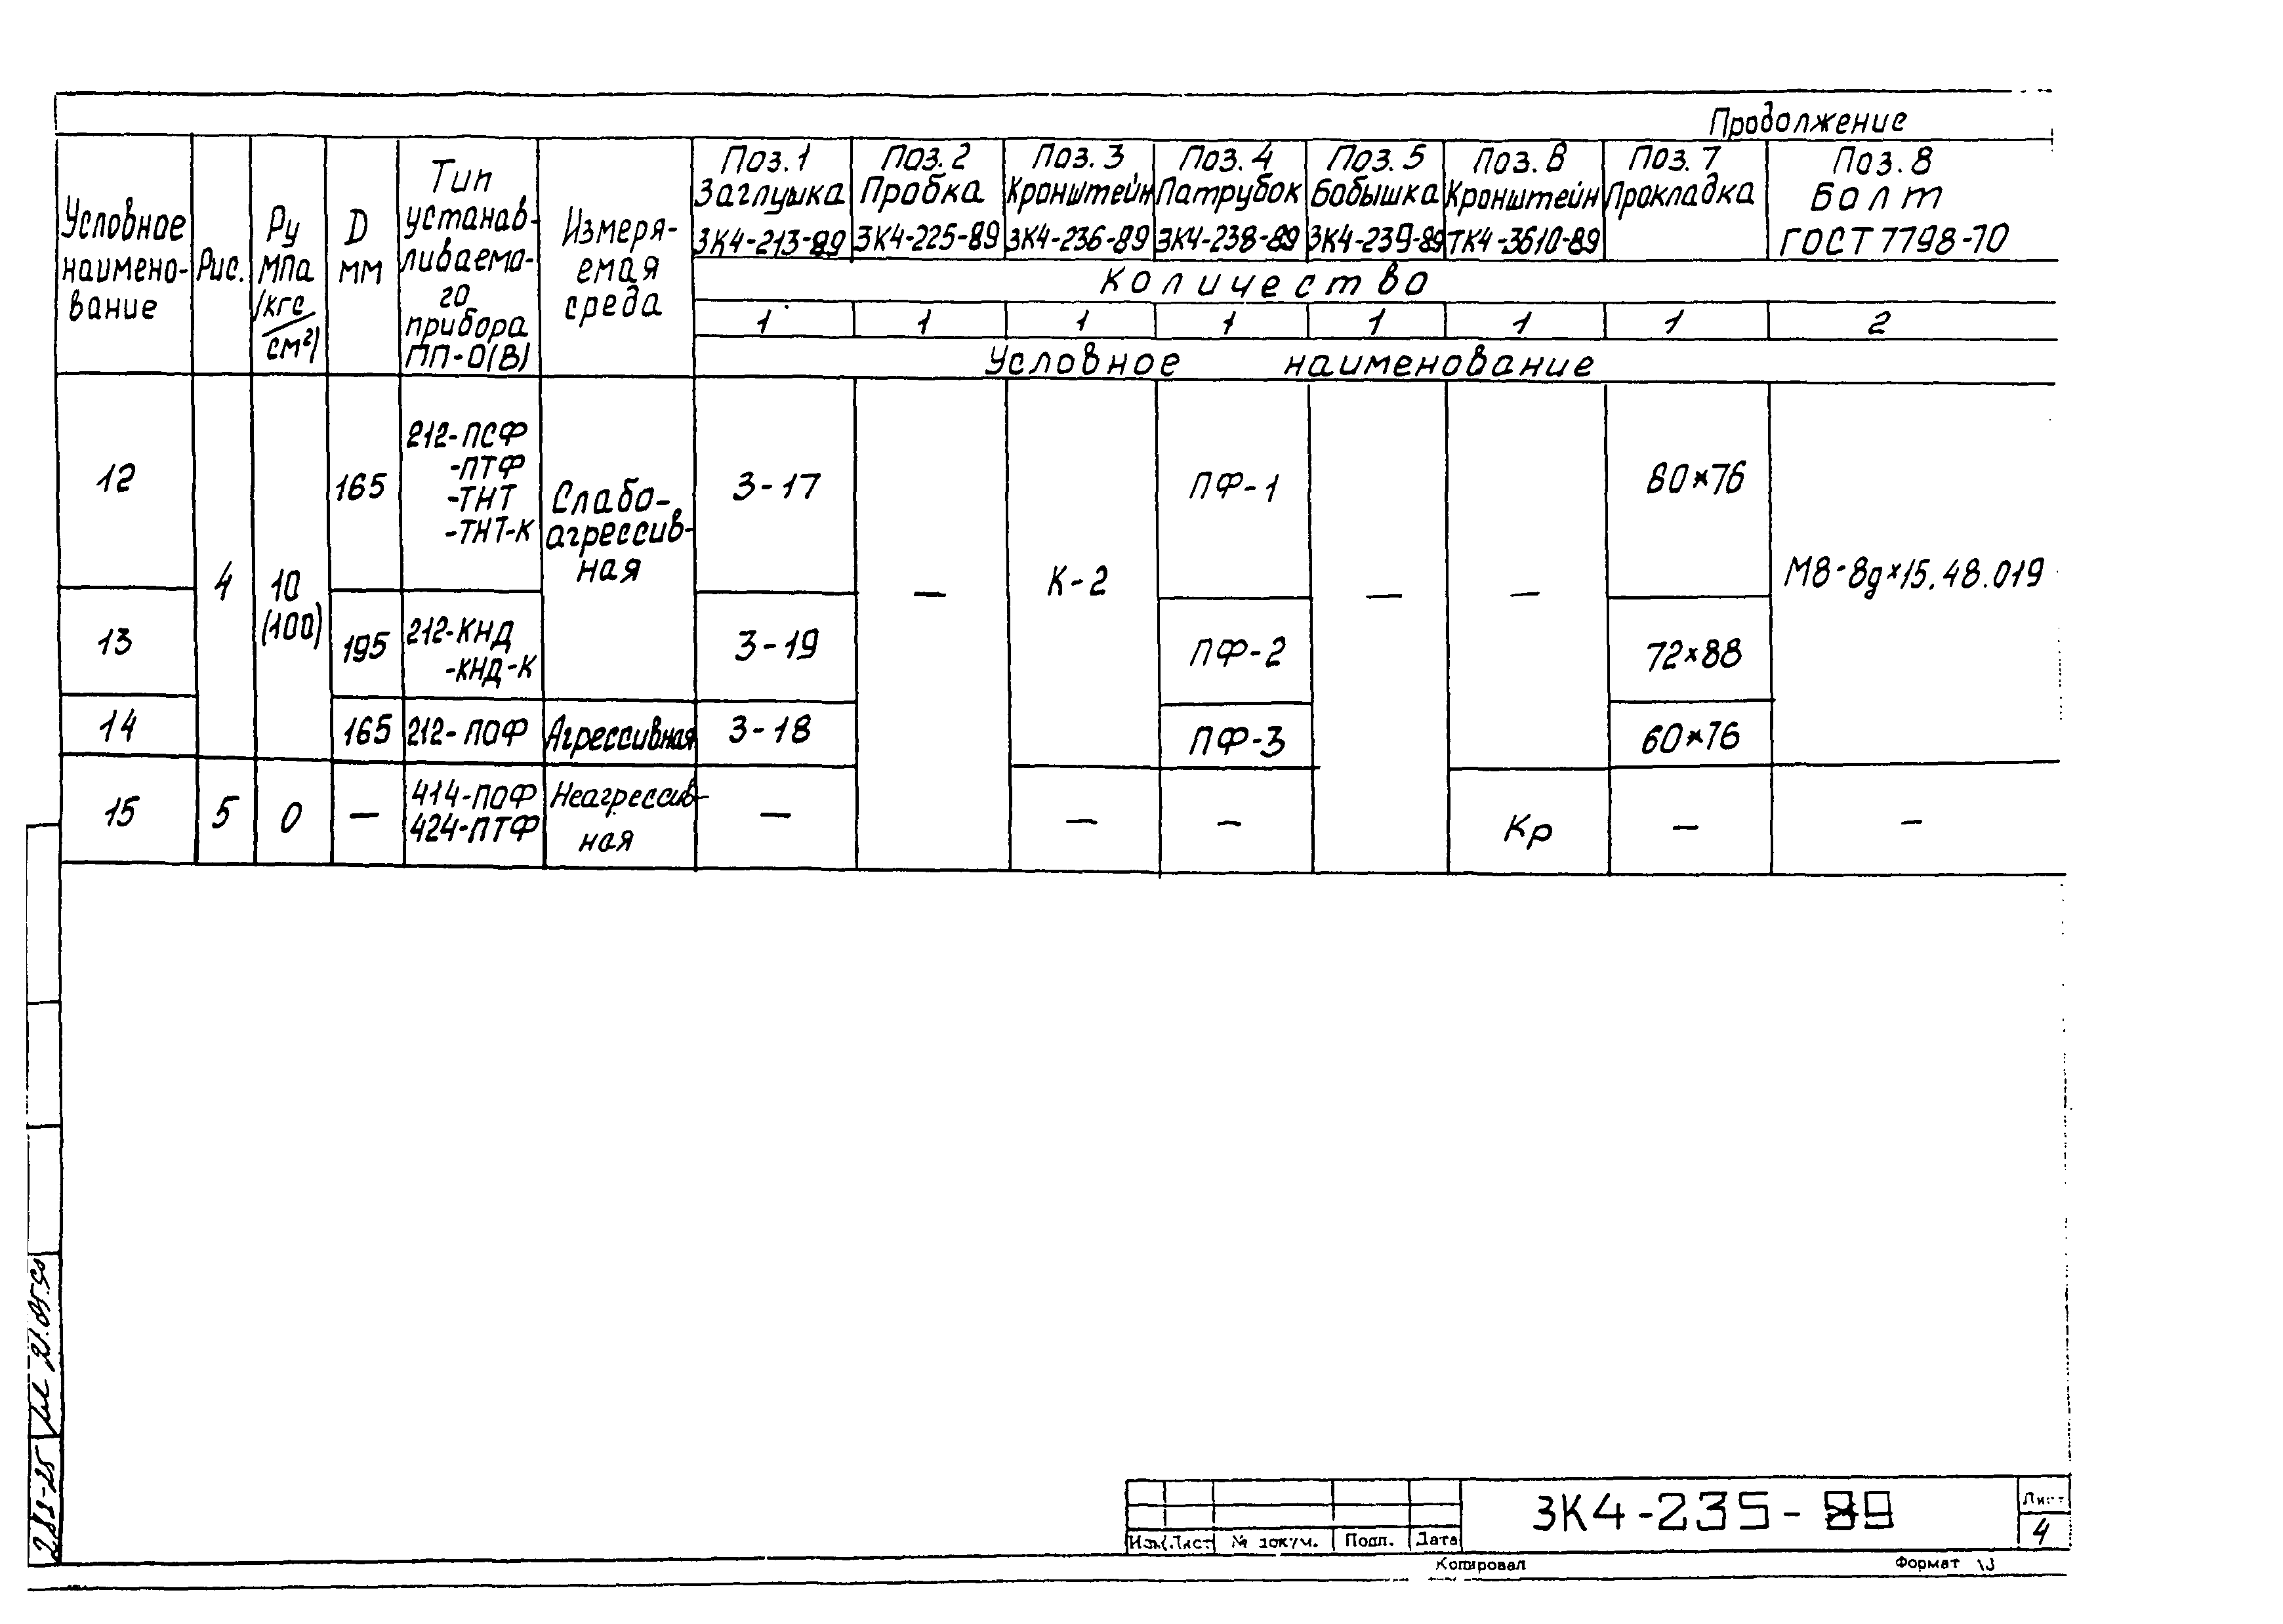 Продолжение
Условное
наимено-
вание
Рис.
Ру
МПа
(кгс/
см²)
D
мм
Тип
устанав-
ливаемо-
го
прибора
ПП-О(В)
Измеря-
емая
среда
Поз. 1
Заглушка
ЗК4-213-89
Поз. 2
Пробка
ЗК4-225-89
Поз. 3
Кронштейн
ЗК4-236-89
Поз. 4
Патрубок
ЗК4-238-89
Поз. 5
Бобышка
ЗК4-239-89
Поз. 6
Кронштейн
ТК4-3610-89
Поз. 7
Прокладка
Поз. 8
Болт
ГОСТ 7798-70
количество
1 1 1 1 1 1 1 2
Условное наименование
12
4
10
(100)
165
212-ПСФ
-ПТФ
-ТНТ
-ТНТ-К
Слабо-
агрессив-
ная
3-17
—
К-2
ПФ-1
—
—
60×76
М8-8g×15.48.019
13
195
212-КНД
-КНД-К
3-19
ПФ-2
72×88
14
165
212-ПОФ
Агрессивная
3-18
ПФ-3
60×76
15
5
0
—
414-ПОФ
424-ПТФ
Неагрессив-
ная
—
—
—
Кр
—
—
288-25
21.05.90
Изм. Лист № докум. Подп. Дата
ЗК4-235-89
Лист
4
Копировал
Формат